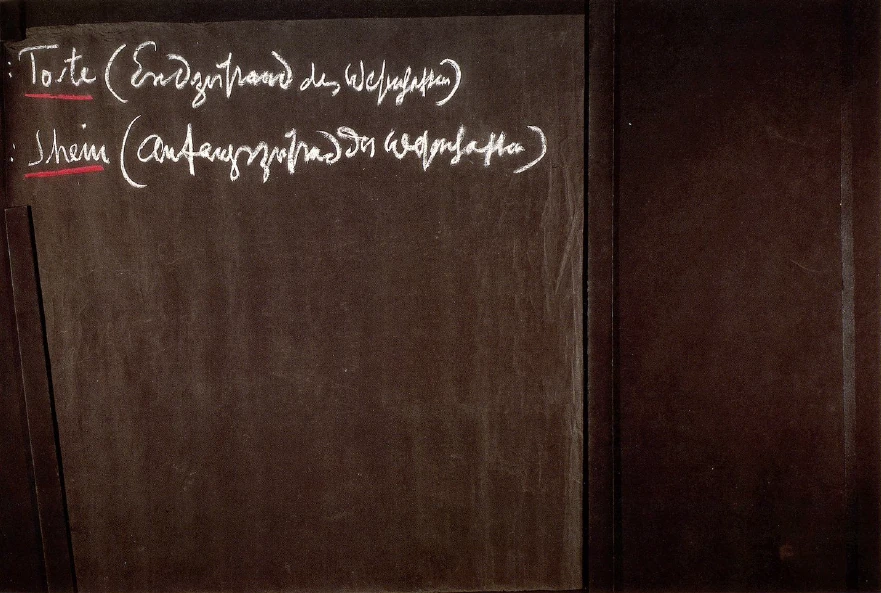 : Tote (Endzustand des Wesenhaften)
: Schein (Anfangszustand des Wesenhaften)